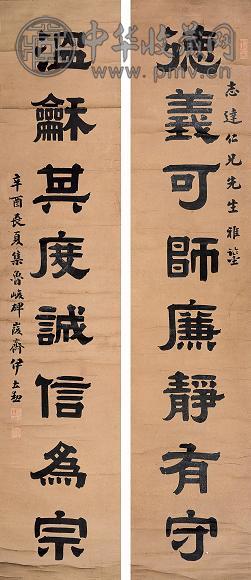 中华收藏网
www.pmv.cn
志達仁兄先生雅鑒
德義可師廉靜有守
溫龢其度誠信為宗
辛酉長夏集魯峻碑葭齋伊立勳